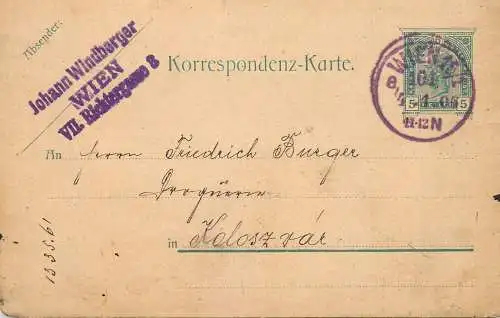 Absender:
Johann Windberger
WIEN
VII. Richtergasse 8
Korrespondenz-Karte.
WIEN
8 1 05
11-12N
5 5
An Herrn Friedrich Burger
Droguerie
in Koloszvár